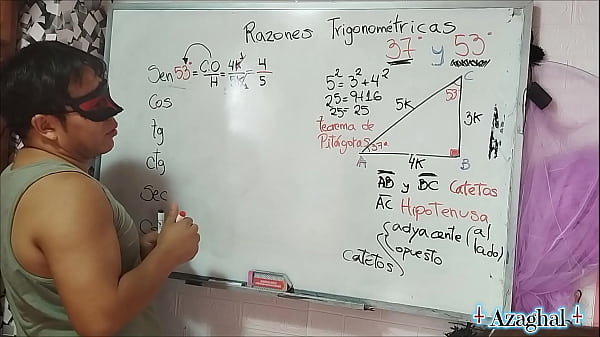 Razones Trigonométricas
37° y 53°
Sen53°= C.O/H = 4K/5K = 4/5
Cos
tg
ctg
Sec
5²=3²+4²
25=9+16
25=25
teorema de
Pitágoras
A
B
C
37°
53°
5K
3K
4K
AB y BC Catetos
AC Hipotenusa
Catetos { adyacente (al lado)
opuesto
Azaghal